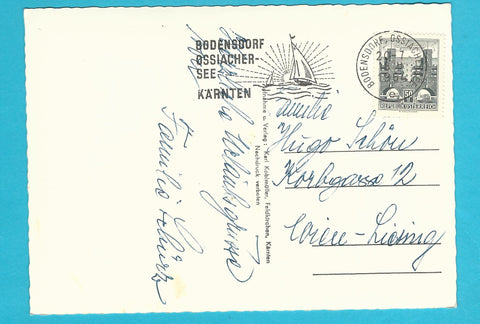 BODENSDORF
OSSIACHER-
SEE
KÄRNTEN
BODENSDORF, OSSIACH
REPUBLIK ÖSTERREICH
Herzliche Urlaubsgrüsse
Familie
Familie
Hugo Schön
Korbgasse 12
Wien-Liesing
Aufnahme u. Verlag: Karl Kollmüller, Feldkirchen, Kärnten
Nachdruck verboten